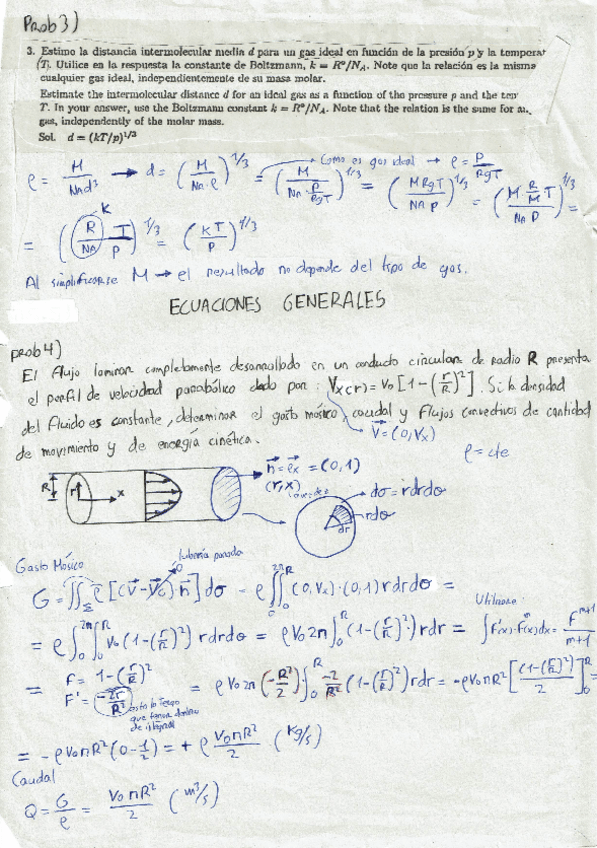 Prob 3)
3. Estime la distancia intermolecular media d para un gas ideal en función de la presión p y la temperat
(T). Utilice en la respuesta la constante de Boltzmann, k = R°/N_A. Note que la relación es la misma
cualquier gas ideal, independientemente de su masa molar.
Estimate the intermolecular distance d for an ideal gas as a function of the pressure p and the
T. In your answer, use the Boltzmann constant k = R°/N_A. Note that the relation is the same for
gas, independently of the molar mass.
Sol. d = (kT/p)^1/3
Como es gas ideal → ρ = P/(RgT)
ρ = M/(NA d³) → d = (M/(NA·ρ))^1/3 = (M/(NA · P/(RgT)))^1/3 = (M RgT/(NA P))^1/3 = (M · R/M · T/(NA P))^1/3 =
K
= ((R/NA) T/P)^1/3 = (KT/P)^1/3
Al simplificarse M → el resultado no depende del tipo de gas.
ECUACIONES GENERALES
prob 4)
El flujo laminar completamente desarrollado en un conducto circular de radio R presenta
el perfil de velocidad parabólico dado por: Vx(r) = Vo[1-(r/R)²]. Si la densidad
del fluido es constante, determinar el gasto másico, caudal y flujos convectivos de cantidad
de movimiento y de energía cinética.
V⃗ = (0, Vx)
ρ = cte
R
r
x
n⃗ = e⃗x = (0,1)
(r,x)
dσ = rdrdθ
rdθ
dr
Gasto Másico
tubería parada
G = ∬Σ ρ[(V⃗ - V⃗c)·n⃗]dσ = ρ∫₀^2π∫₀^R (0,Vx)·(0,1) rdrdθ =
Utilizare:
= ρ∫₀^2π∫₀^R Vo(1-(r/R)²) rdrdθ = ρVo2π∫₀^R (1-(r/R)²) rdr = ∫F'(x)·F(x)^m dx = F^(m+1)/(m+1)
= F = 1-(r/R)²
F' = (-2r/R²) = ρVo2π(-R²/2)∫₀^R -2/R² (1-(r/R)²) rdr = -ρVoπR² [(1-(r/R)²)²/2]₀^R =
esto lo tengo
que tener dentro
de integral
= -ρVoπR²(0-1/2) = +ρ VoπR²/2 (Kg/s)
Caudal
Q = G/ρ = VoπR²/2 (m³/s)